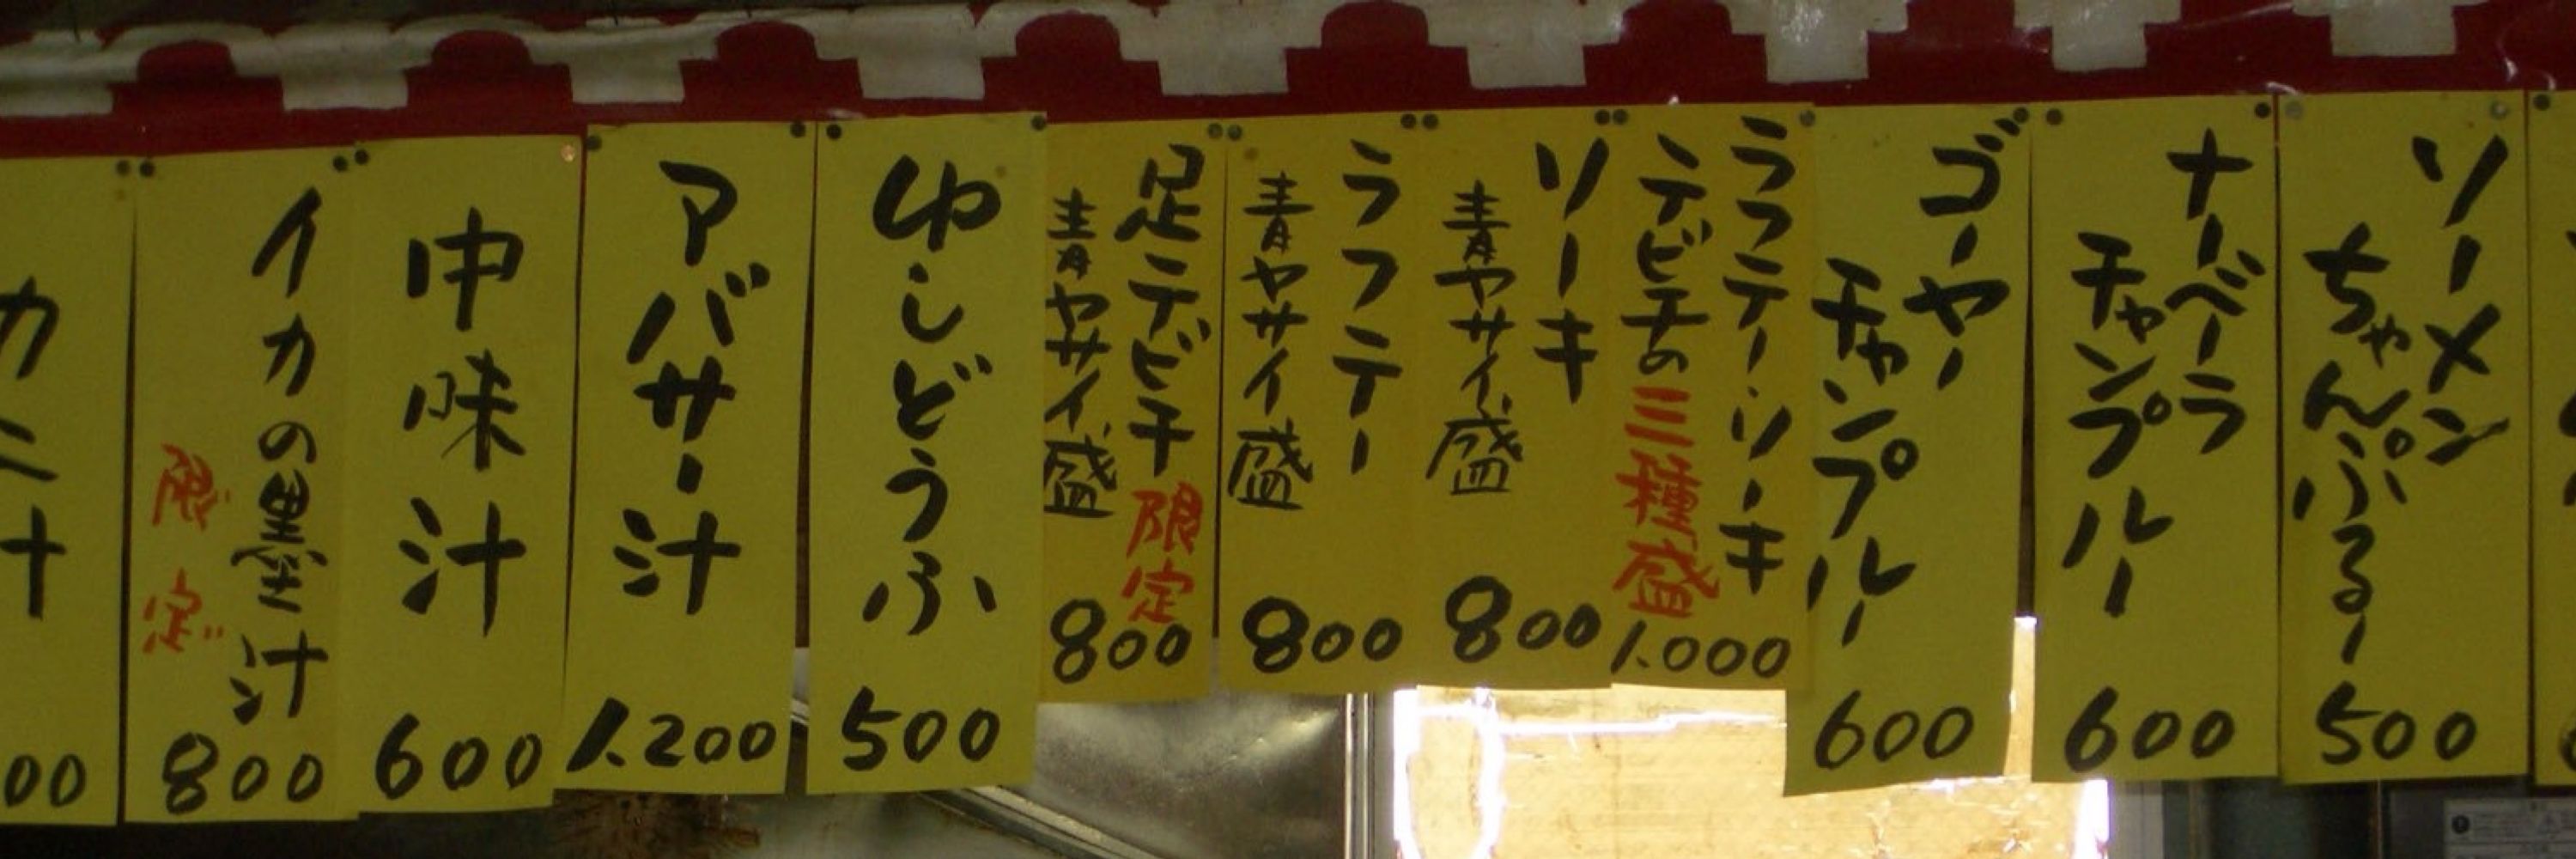 ソーメン
ちゃんぷるー
500
ナーベーラ
チャンプルー
600
ゴーヤー
チャンプルー
600
ラフテー・ソーキ
テビチの三種盛
1.000
ソーキ
青ヤサイ盛
800
ラフテー
青ヤサイ盛
800
足テビチ限定
青ヤサイ盛
800
ゆしどうふ
500
アバサー汁
1.200
中味汁
600
イカの墨汁
限定
800
カニ汁
00